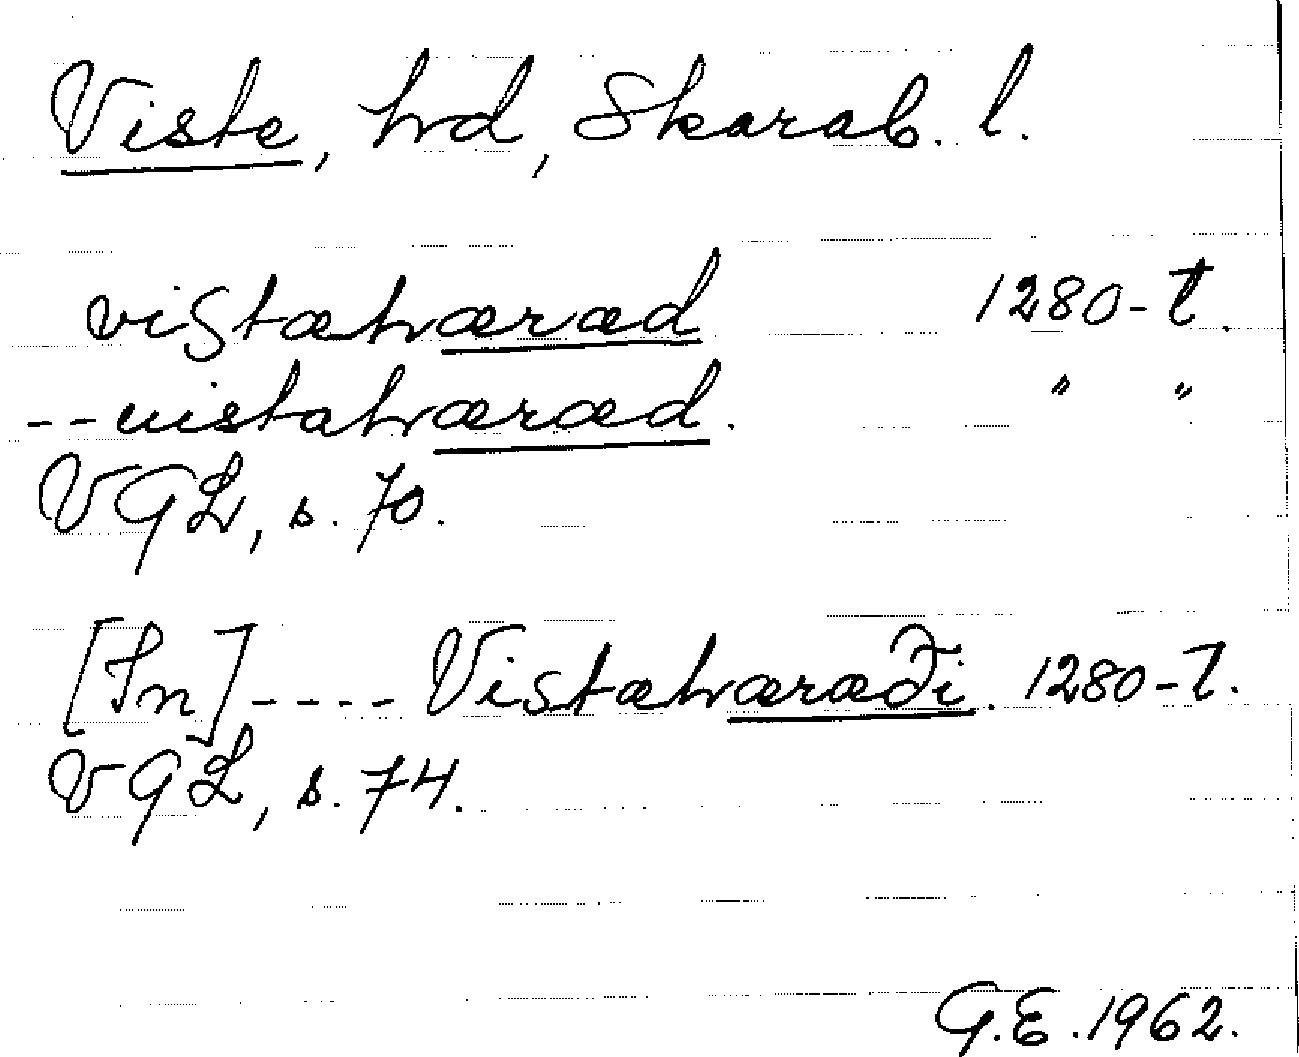 Viste, hd, Skarab. l.
vistæhæræd 1280-t.
--uistahæræd. " "
VGL, s. 70.
[In]---- Vistæhæraði. 1280-t.
VGL, s. 74.
G.E. 1962.